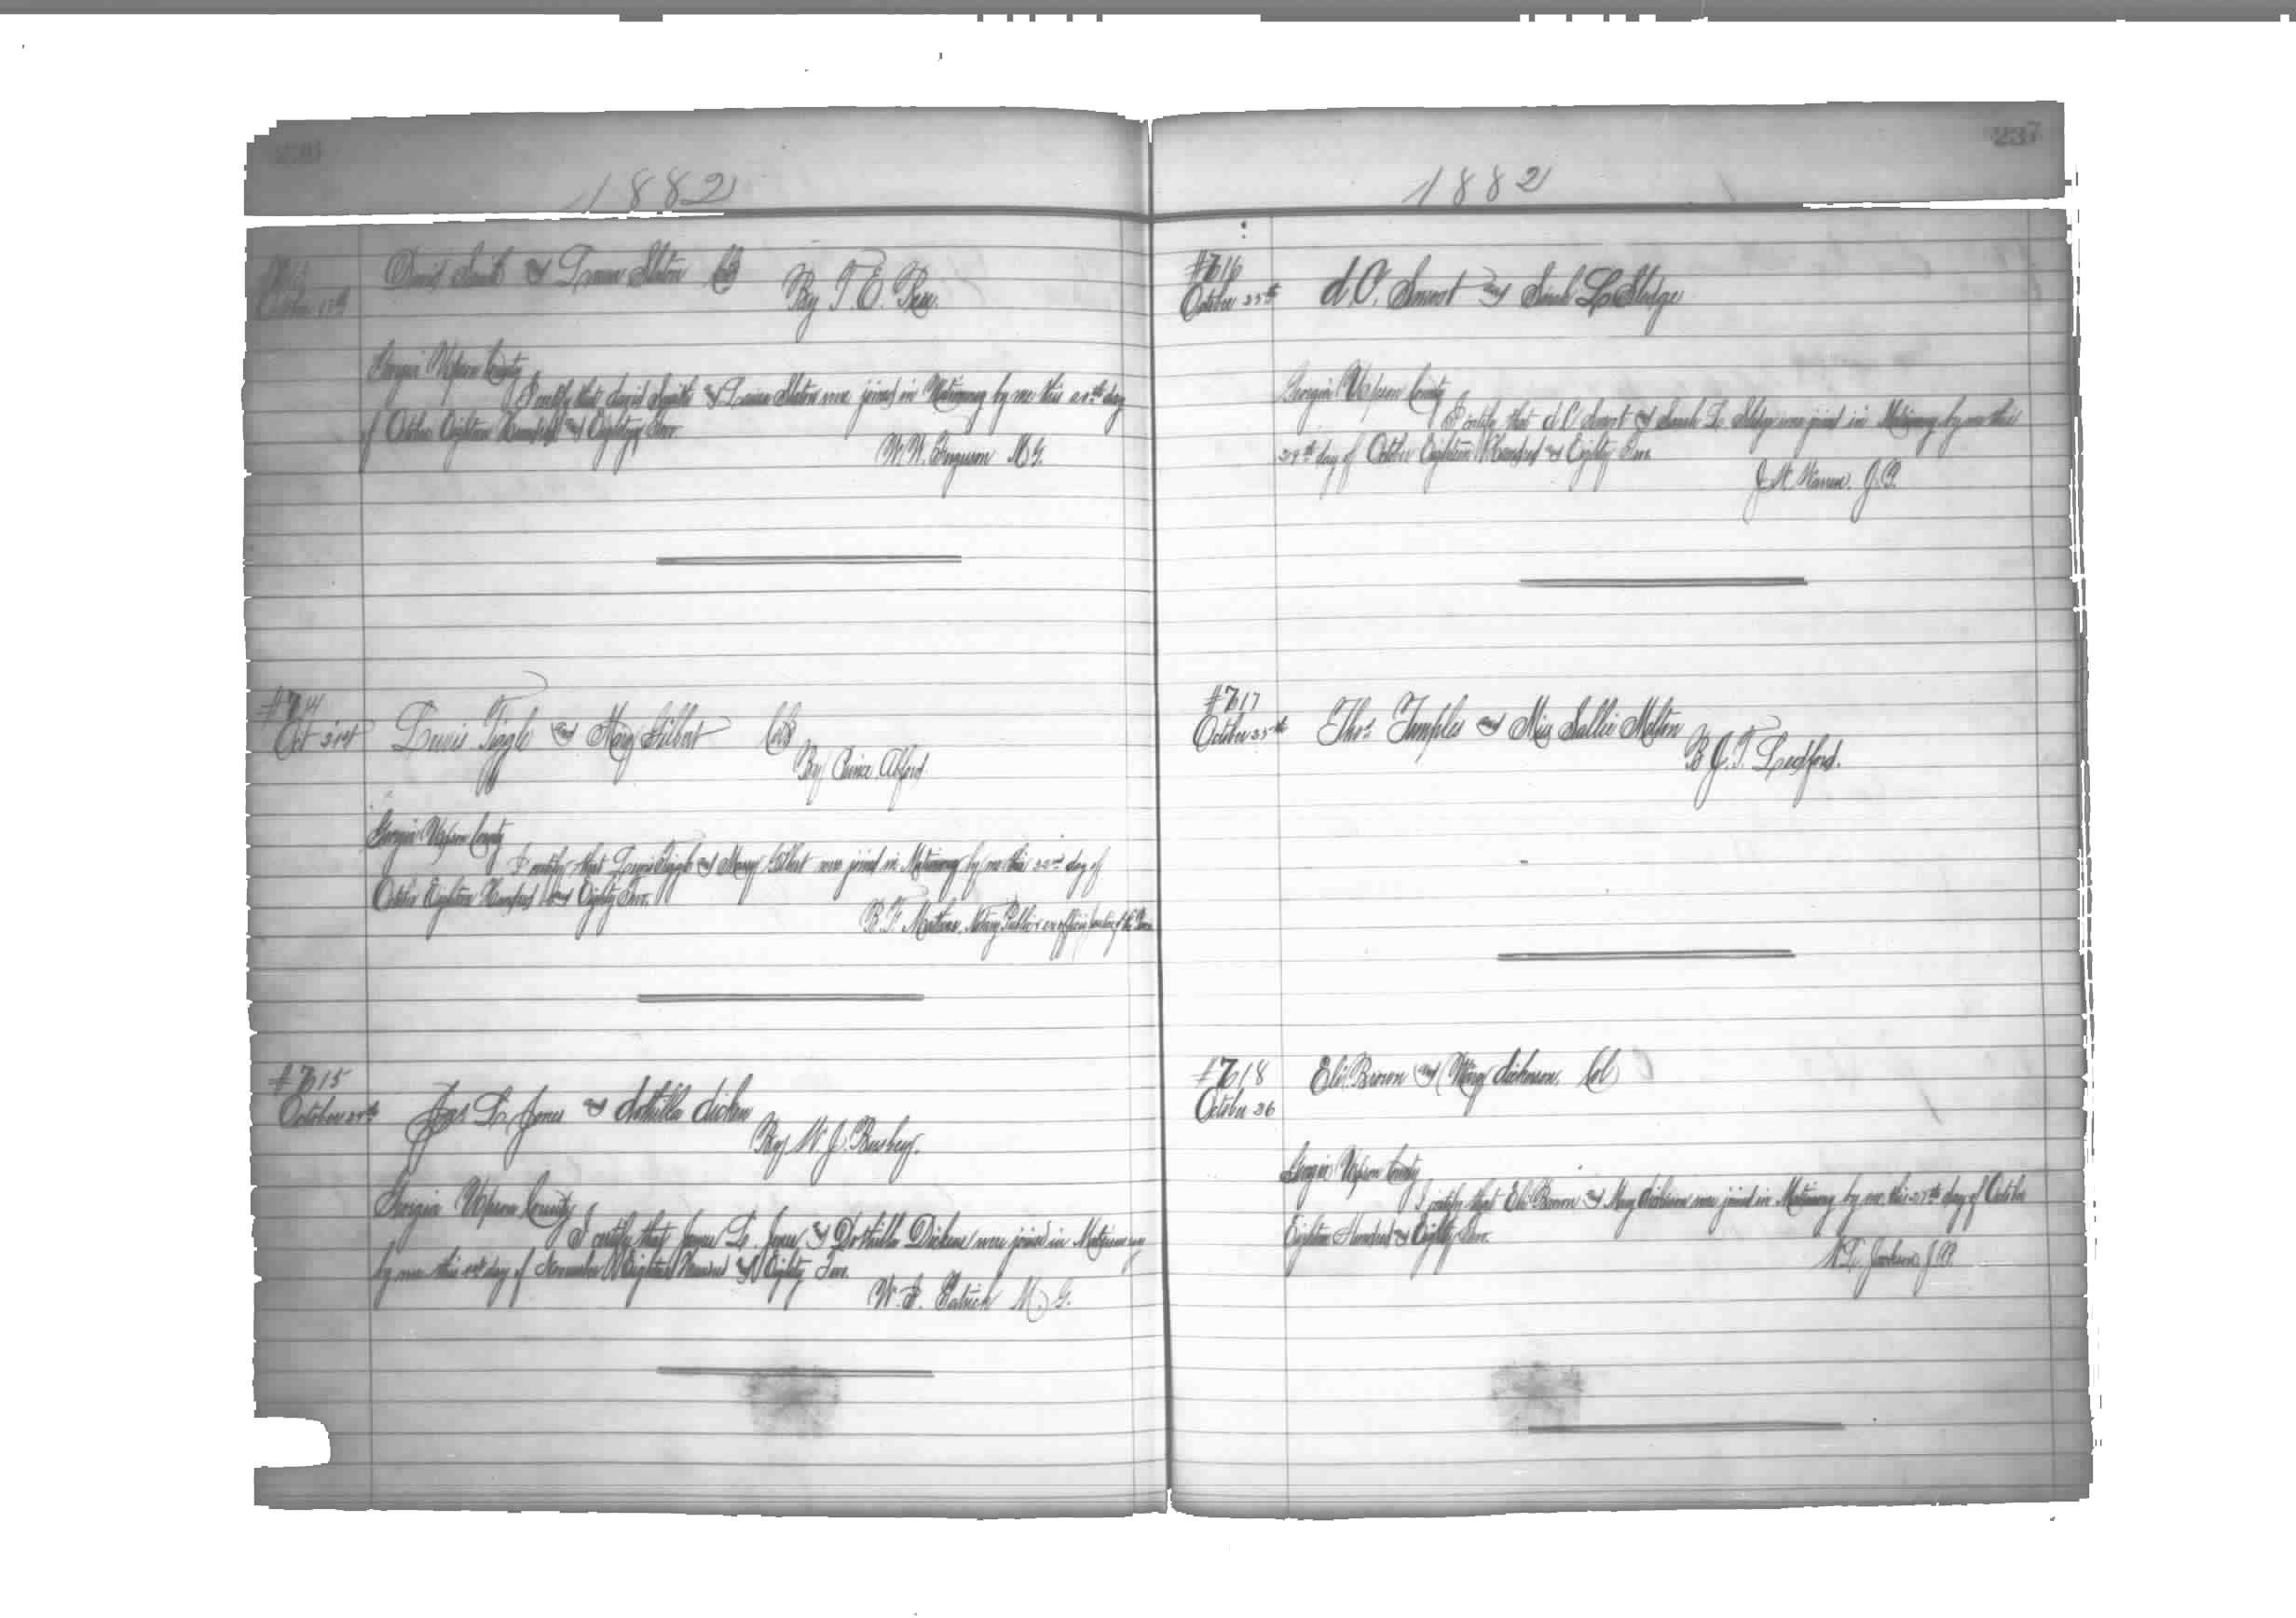 1882
David Smith & Laura Slaton Col
October 17th
By T. E. Rea.
Georgia Upson County
I certify that David Smith & Laura Slaton were joined in Matrimony by me this day
of October Eighteen Hundred and Eighty Two.
W. W. Ferguson M G.
#7614
Oct 21st
Lewis Tiggle and Mary Gilbert Col
By Prince Alford
Georgia Upson County
I certify that Lewis Tiggle & Mary Gilbert were joined in Matrimony by me this 22nd day of
October Eighteen Hundred and Eighty Two.
B. F. Notary Public & ex officio Justice of the Peace
#7615
October
Jas L Jones & dicken
By W. J. Busbey.
Georgia Upson County
I certify that James L. Jones & Dicken were joined in Matrimony
by me this 1st day of November Eighteen Hundred and Eighty Two.
W. F. Patrick M. G.
237
1882
#7616
October 25th
d. O. Smart and Sarah L Sledge
Georgia Upson County
I certify that d O Smart & Sarah L. Sledge were joined in Matrimony by me this
29th day of October Eighteen Hundred & Eighty Two.
J. W. Warren. J. P.
#7617
October 25th
Thos Temples and Miss Sallie Melton
B J. T. Ledford.
#7618
October 26
Eli Brown and Mary dickerson. Col
Georgia Upson County
I certify that Eli Brown & Mary dickerson were joined in Matrimony by me this 27th day of October
Eighteen Hundred & Eighty Two.
Jackson J. P.